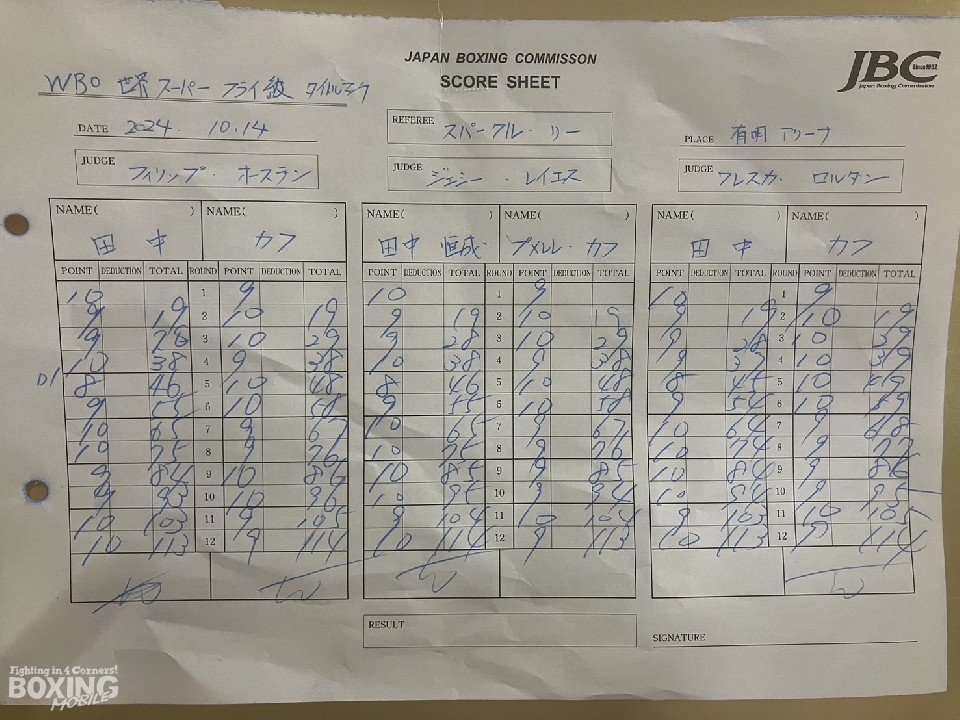 JAPAN BOXING COMMISSON
SCORE SHEET
JBC Since1952
Japan Boxing Commission
WBO 世界 スーパー フライ級 タイトルマッチ
DATE 2024. 10.14
REFEREE スパークル・リー
PLACE 有明 アリーナ
JUDGE フィリップ・ホースラン
JUDGE ジェシー・レイエス
JUDGE フレスカ ロルダン
NAME( ) NAME( ) NAME( ) NAME( ) NAME( ) NAME( )
田中 カフ 田中 恒成 プメレレ・カフ 田中 カフ
POINT DEDUCTION TOTAL ROUND POINT DEDUCTION TOTAL POINT DEDUCTION TOTAL ROUND POINT DEDUCTION TOTAL POINT DEDUCTION TOTAL ROUND POINT DEDUCTION TOTAL
10 1 9 10 1 9 10 1 9
9 19 2 10 19 9 19 2 10 19 9 19 2 10 19
9 28 3 10 29 9 28 3 10 29 9 28 3 10 29
10 38 4 9 38 10 38 4 9 38 9 37 4 10 39
8 46 5 10 48 8 46 5 10 48 8 45 5 10 49
9 55 6 10 58 9 55 6 10 58 9 54 6 10 59
10 65 7 9 67 10 65 7 9 67 10 64 7 9 68
10 75 8 9 76 10 75 8 9 76 10 74 8 9 77
9 84 9 10 86 10 85 9 9 85 10 84 9 9 86
9 93 10 10 96 10 95 10 9 94 10 94 10 9 95
10 103 11 9 105 9 104 11 10 104 9 103 11 10 105
10 113 12 9 114 10 114 12 9 113 10 113 12 9 114
W W W
RESULT
SIGNATURE
Fighting in 4 Corners!
BOXING
MOBILE